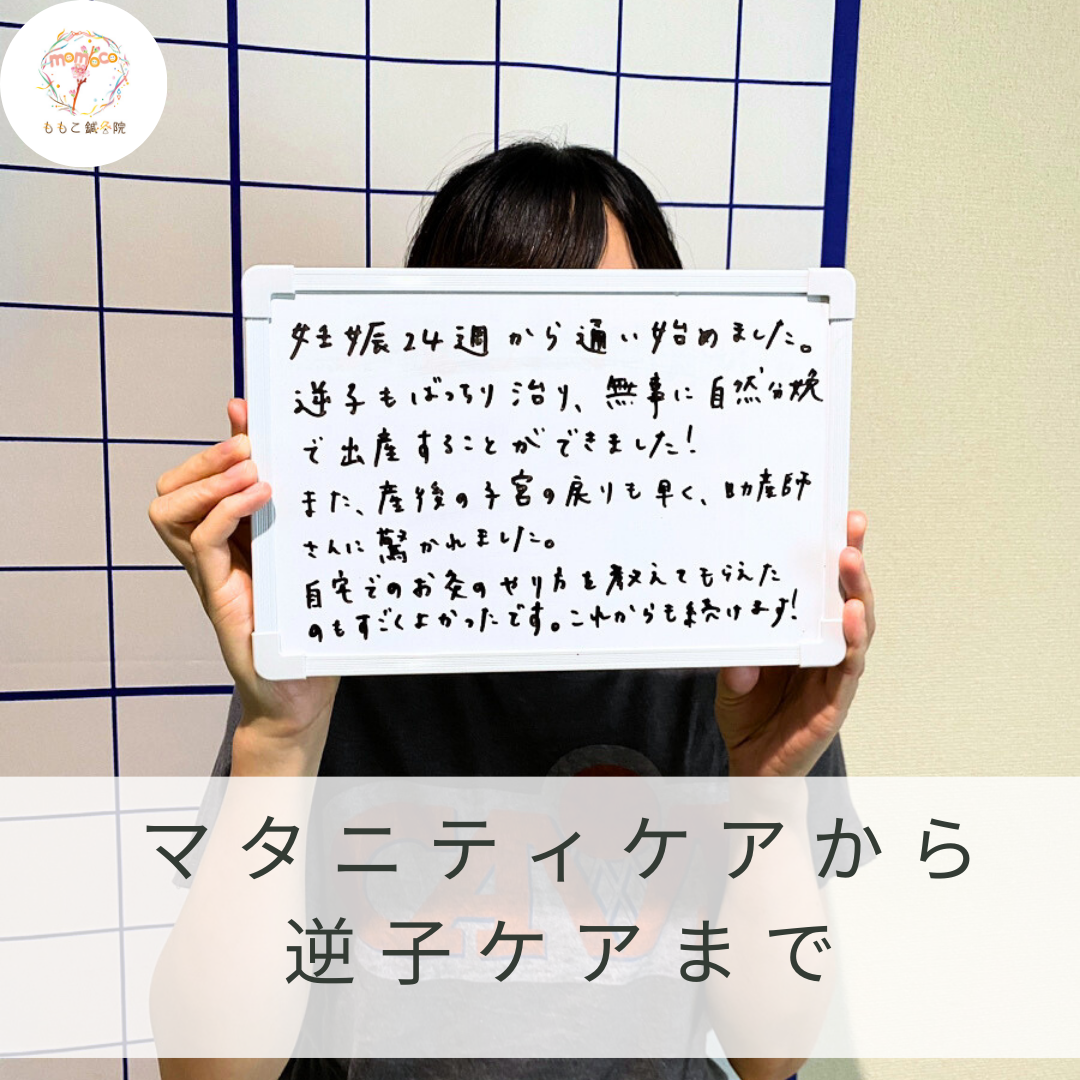 momoco
ももこ鍼灸院
妊娠24週から通い始めました。
逆子もばっちり治り、無事に自然分娩
で出産することができました!
また、産後の子宮の戻りも早く、助産師
さんに驚かれました。
自宅でのお灸のやり方を教えてもらえた
のもすごくよかったです。これからも続けます!
マタニティケアから
逆子ケアまで